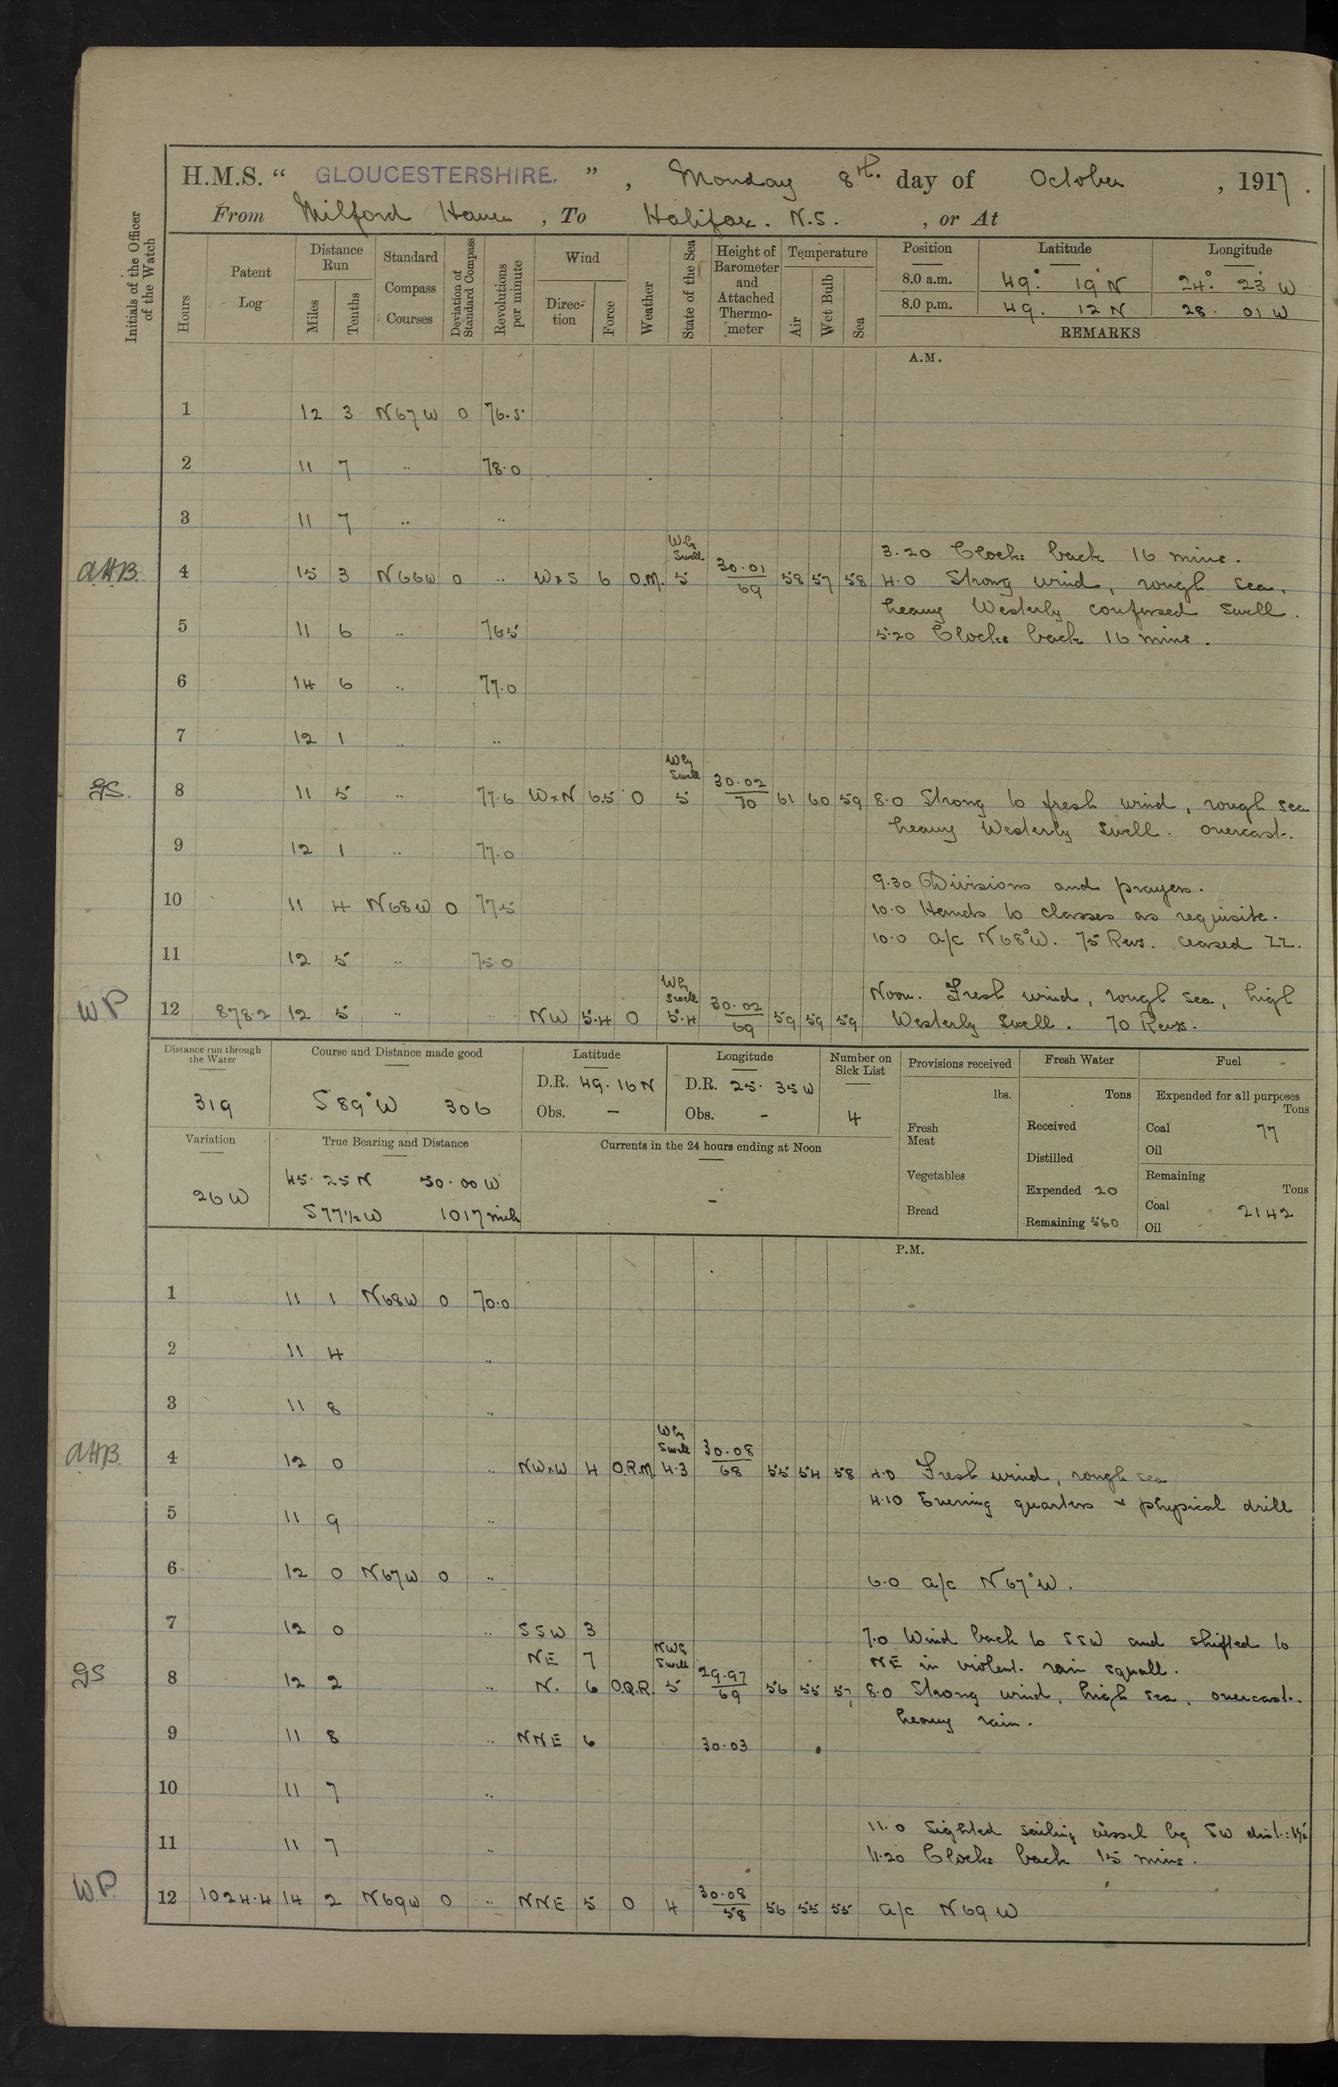 H.M.S. “ GLOUCESTERSHIRE. ” , Monday 8th. day of October , 1917.
From Milford Haven , To Halifax. N.S. , or At
Initials of the Officer of the Watch
Hours
Patent Log
Distance Run
Miles
Tenths
Standard Compass Courses
Deviation of Standard Compass
Revolutions per minute
Wind
Direction
Force
Weather
State of the Sea
Height of Barometer and Attached Thermometer
Temperature
Air
Wet Bulb
Sea
Position Latitude Longitude
8.0 a.m. 49° 19 N 24° 23 W
8.0 p.m. 49. 12 N 28. 01 W
REMARKS
A.M.
1 12 3 N67W 0 76.5
2 11 7 " 78.0
3 11 7 " "
3.20 Clocks back 16 mins.
Wly Swell
AHB. 4 15 3 N66W 0 " WxS 6 O.M. 5 30.01/69 58 57 58 4.0 Strong wind, rough sea,
heavy Westerly confused swell.
5 11 6 " 76.5 5.20 Clocks back 16 mins.
6 14 6 " 77.0
7 12 1 " "
Wly Swell
GS. 8 11 5 " 77.6 WxN 6.5 O 5 30.02/70 61 60 59 8.0 Strong to fresh wind, rough sea
heavy Westerly swell. overcast.
9 12 1 " 77.0
9.30 Divisions and prayers.
10 11 4 N68W 0 77.5 10.0 Hands to classes as requisite.
10.0 a/c N68°W. 75 Revs. ceased ZZ.
11 12 5 " 75.0
Wly Swell
Noon. Fresh wind, rough sea, high
WP 12 878.2 12 5 " " NW 5.4 O 5.4 30.02/69 59 59 59 Westerly swell. 70 Revs.
Distance run through the Water
319
Course and Distance made good
S 89°W 306
Latitude
D.R. 49. 16 N
Obs. –
Longitude
D.R. 25. 35 W
Obs. –
Number on Sick List
4
Variation
26 W
True Bearing and Distance
45. 25 N 50. 00 W
S 77½ W 1017 miles
Currents in the 24 hours ending at Noon
–
Provisions received
lbs.
Fresh Meat
Vegetables
Bread
Fresh Water
Tons
Received
Distilled
Expended 20
Remaining 560
Fuel
Expended for all purposes
Tons
Coal 77
Oil
Remaining
Tons
Coal 2142
Oil
P.M.
1 11 1 N68W 0 70.0
2 11 4 "
3 11 8 "
Wly Swell
AHB. 4 12 0 " NWxW 4 O.R.M. 4.3 30.08/68 55 54 58 4.0 Fresh wind, rough sea
4.10 Evening quarters & physical drill
5 11 9 "
6 12 0 N67W 0 " 6.0 a/c N67°W.
7 12 0 " SSW 3 7.0 Wind back to SSW and shifted to
NE 7 NE in violent rain squall.
NWly Swell
GS 8 12 2 " N. 6 O.Q.R. 5 29.97/69 56 55 57 8.0 Strong wind, high sea, overcast.
heavy rain.
9 11 8 " NNE 6 30.03
10 11 7 "
11.0 Sighted sailing vessel bg SW dist:
11 11 7 " 11.20 Clocks back 15 mins.
W.P. 12 1024.4 14 2 N69W 0 " NNE 5 O 4 30.08/58 56 55 55 a/c N69W